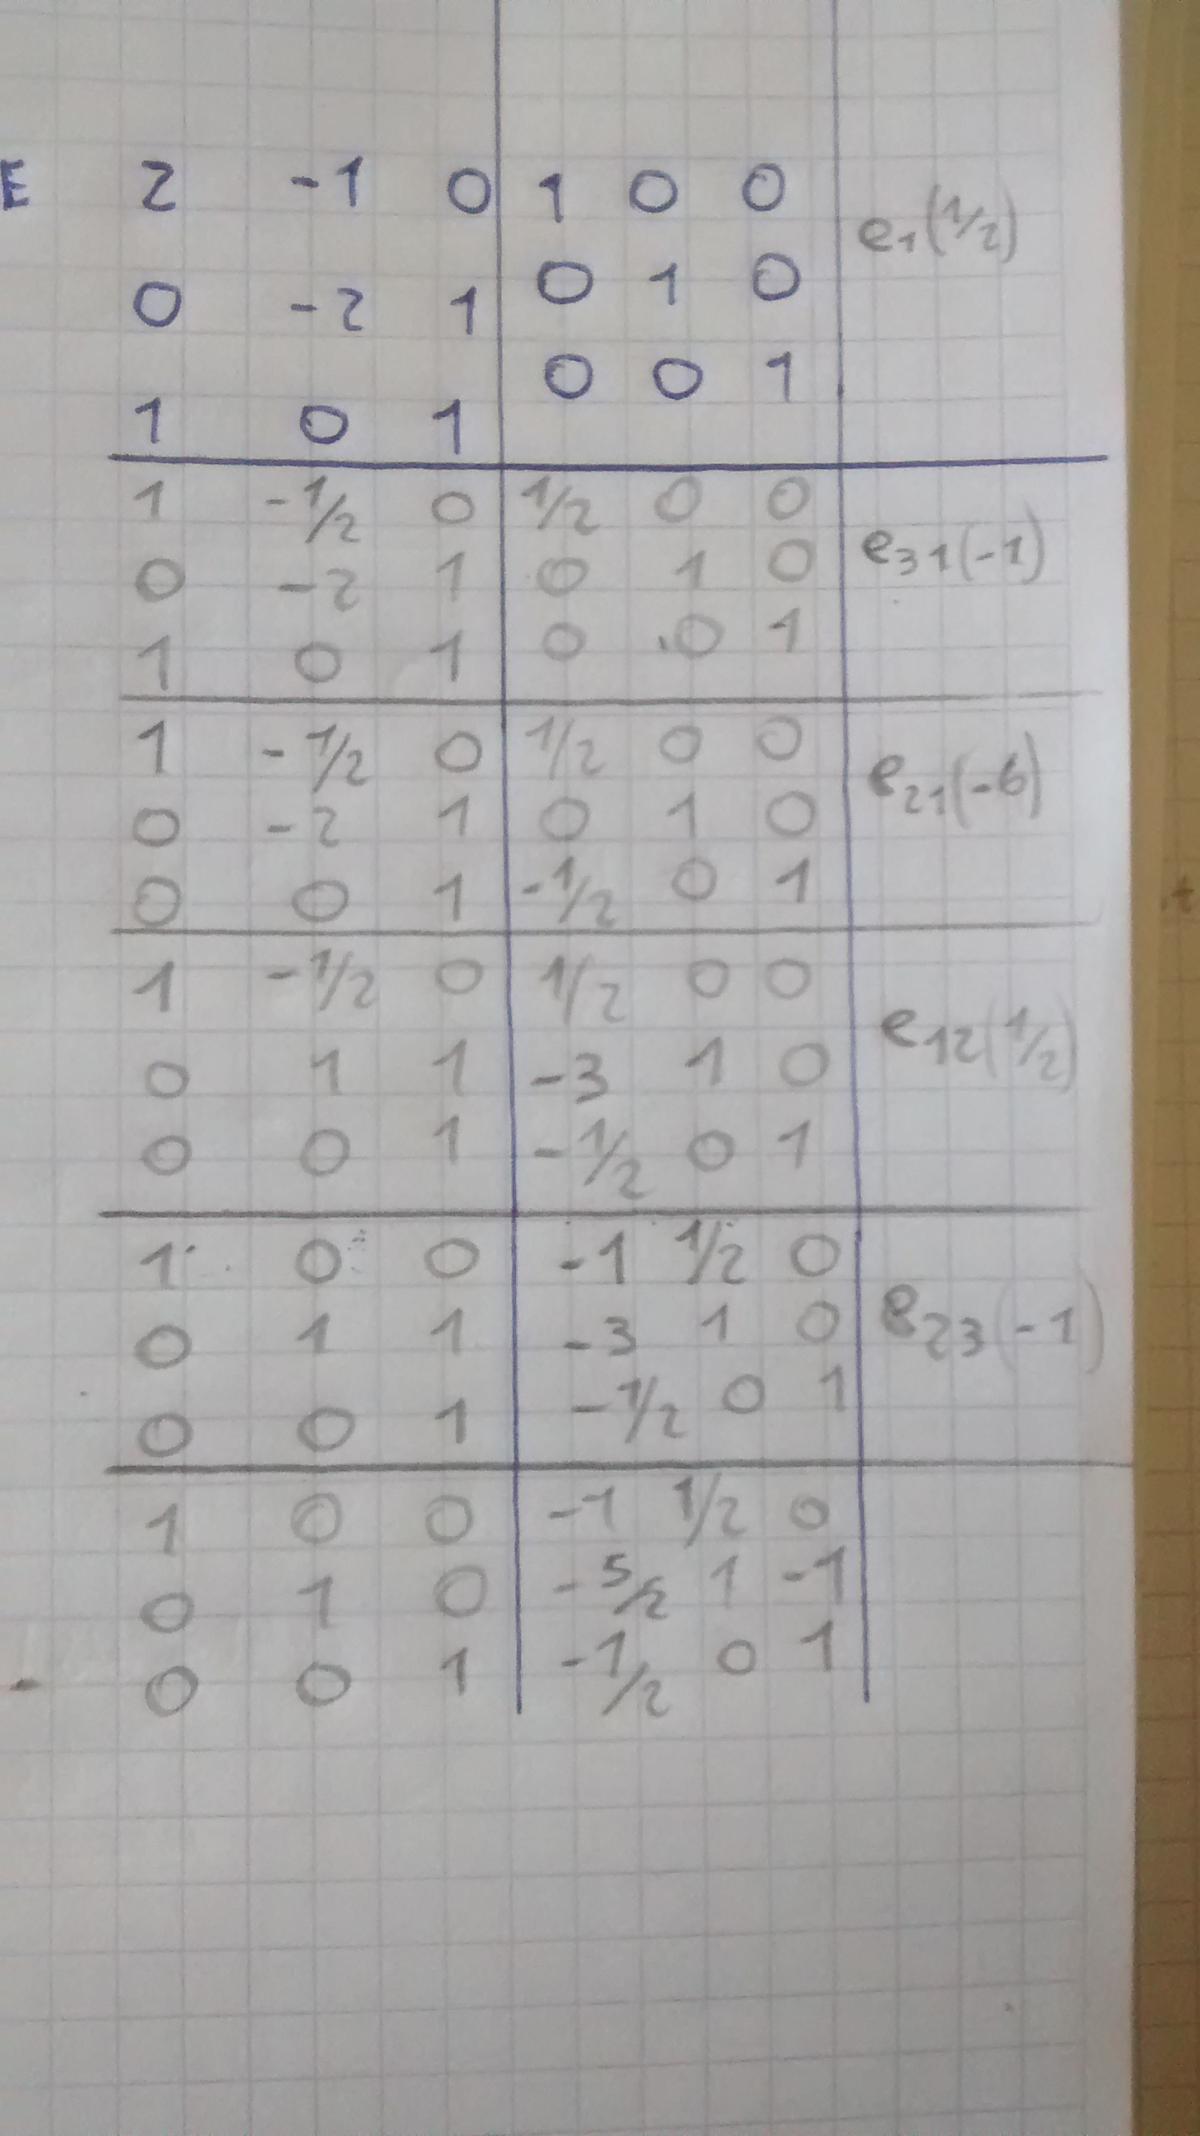 E 2 -1 0 1 0 0 e₁(1/2)
0 -2 1 0 1 0
1 0 1 0 0 1
1 -1/2 0 1/2 0 0
0 -2 1 0 1 0 e₃₁(-1)
1 0 1 0 0 1
1 -1/2 0 1/2 0 0
0 -2 1 0 1 0 e₂₁(-6)
0 0 1 -1/2 0 1
1 -1/2 0 1/2 0 0
0 1 1 -3 1 0 e₁₂(1/2)
0 0 1 -1/2 0 1
1 0 0 -1 1/2 0
0 1 1 -3 1 0 e₂₃(-1)
0 0 1 -1/2 0 1
1 0 0 -1 1/2 0
0 1 0 -5/2 1 -1
0 0 1 -1/2 0 1